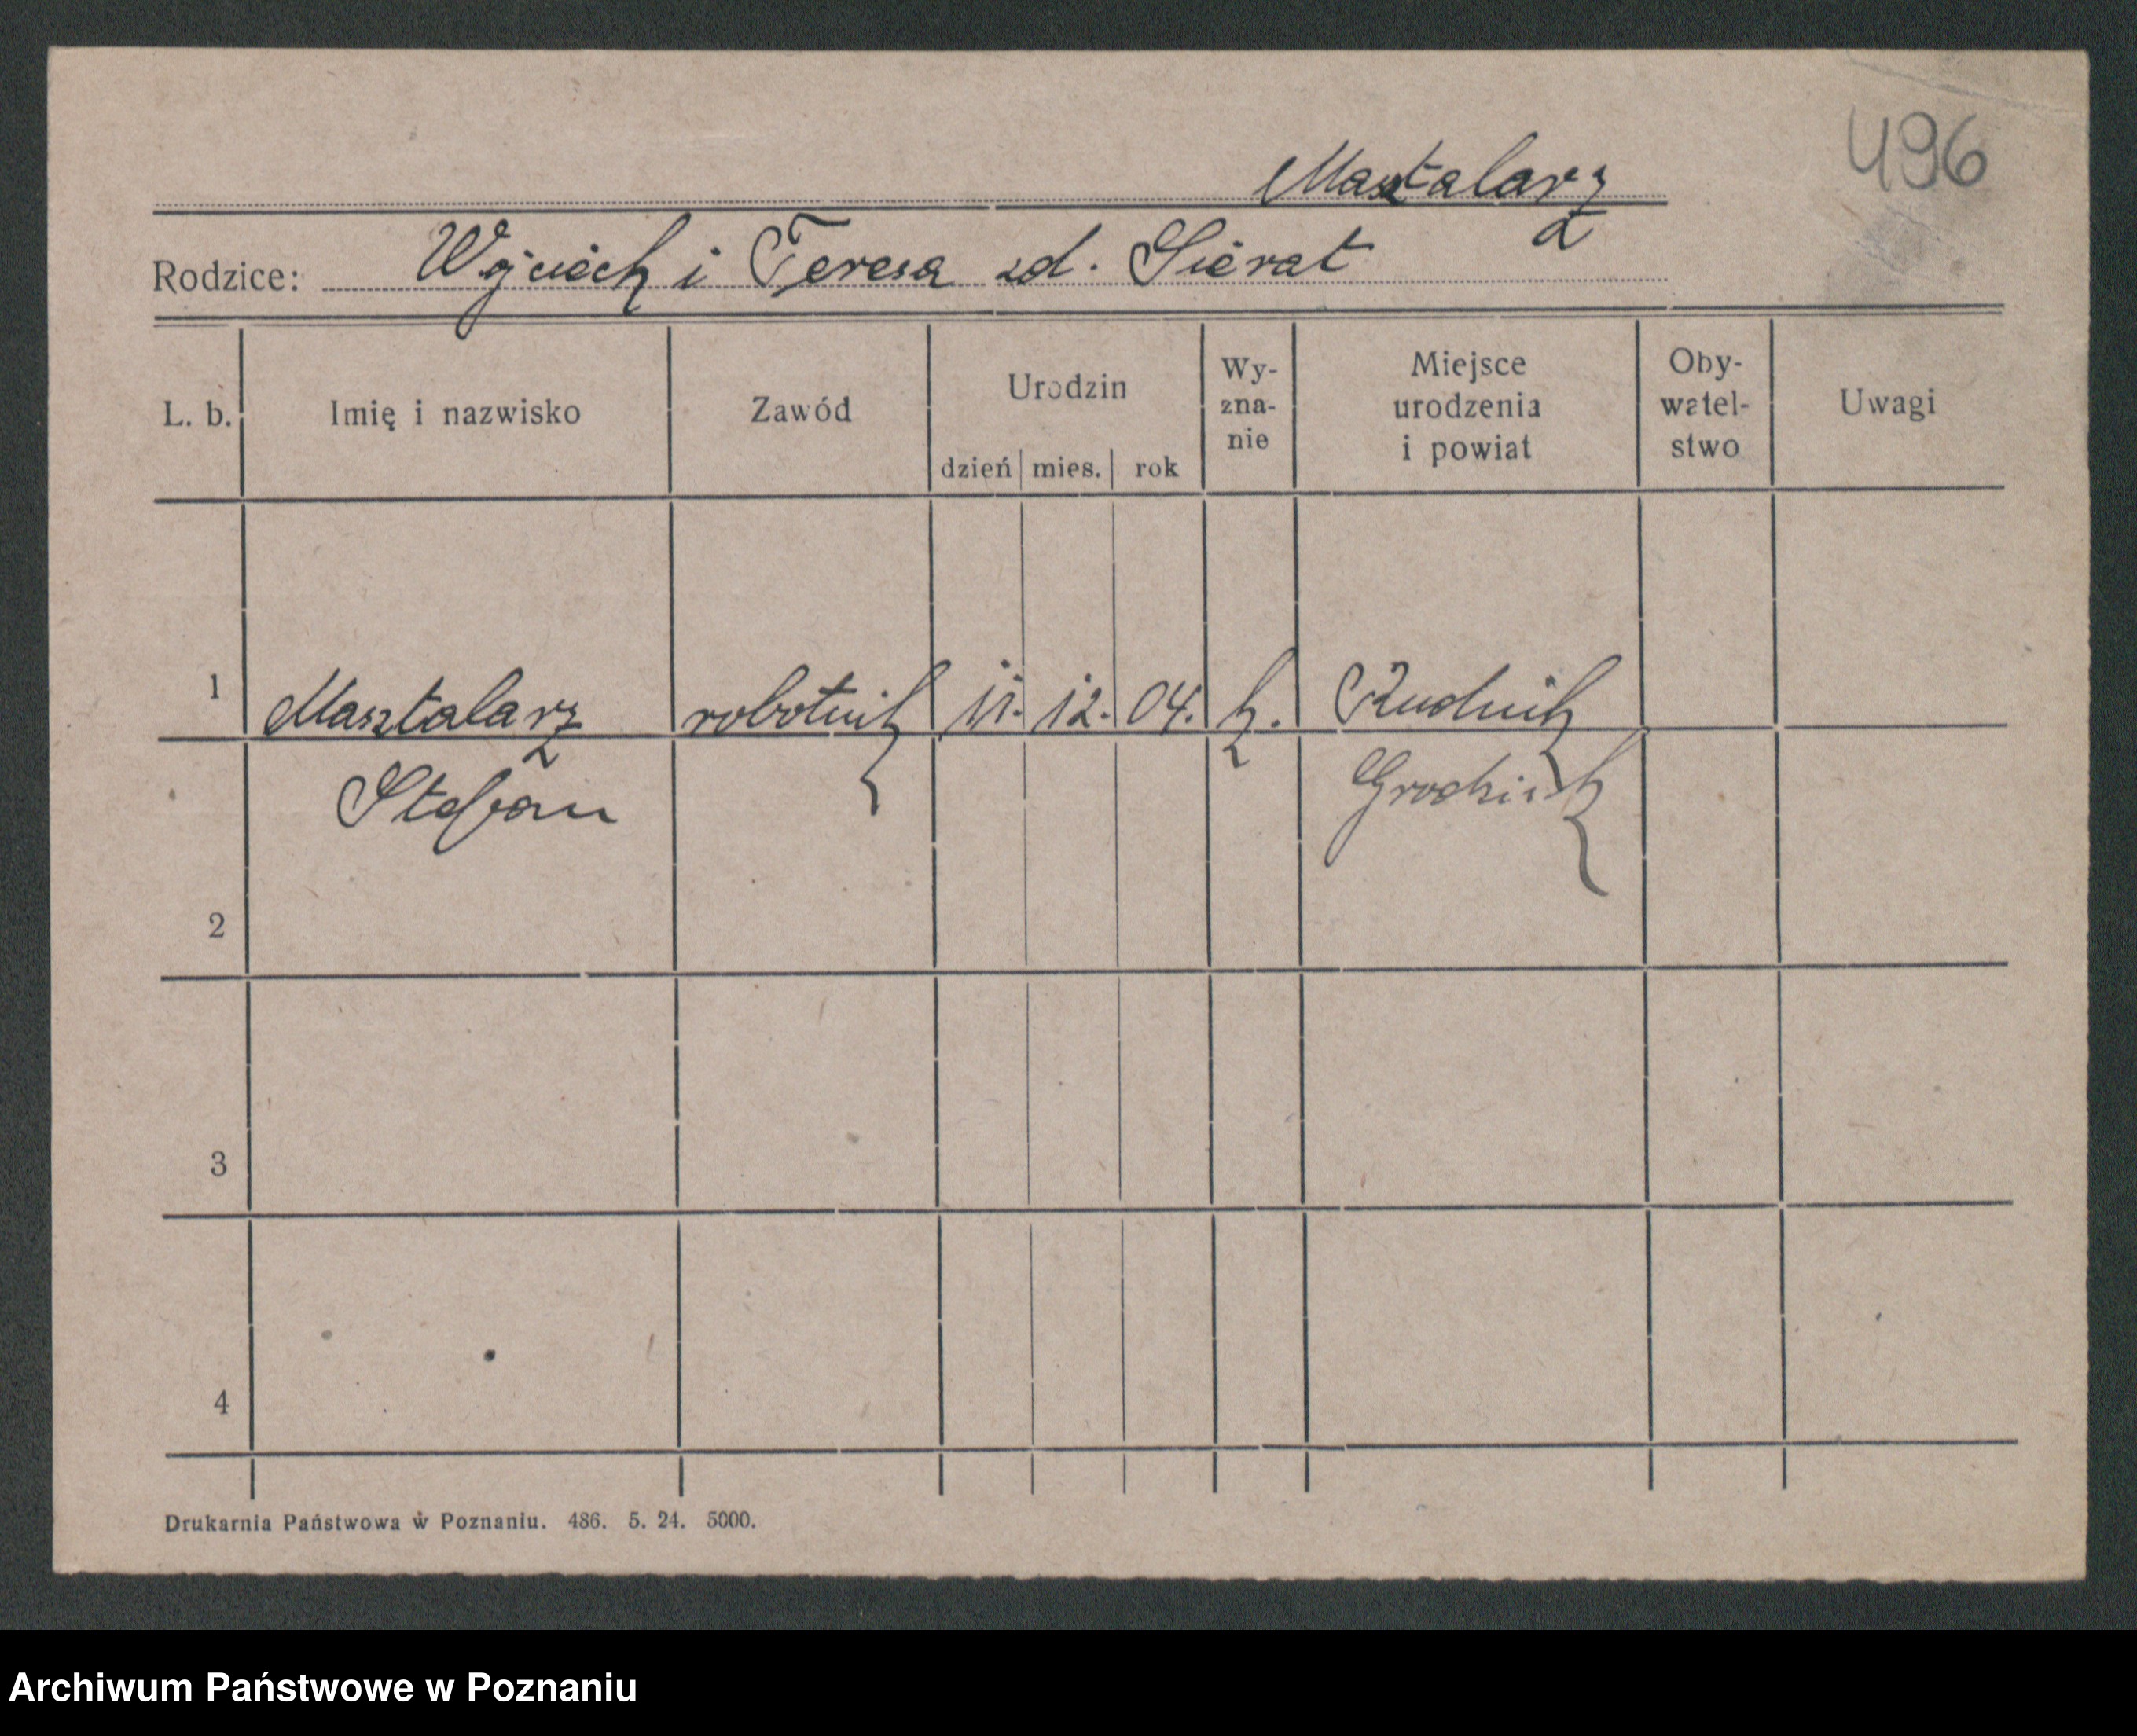 496
Masztalarz
Rodzice: Wojciech i Teresa zd. Sierat
L. b. Imię i nazwisko Zawód Urodzin dzień mies. rok Wy- zna- nie Miejsce urodzenia i powiat Oby- watel- stwo Uwagi
1 Masztalarz robotnik 11. 12. 04. k. Rudnik
Stefan Grodzisk
2
3
4
Drukarnia Państwowa w Poznaniu. 486. 5. 24. 5000.
Archiwum Państwowe w Poznaniu